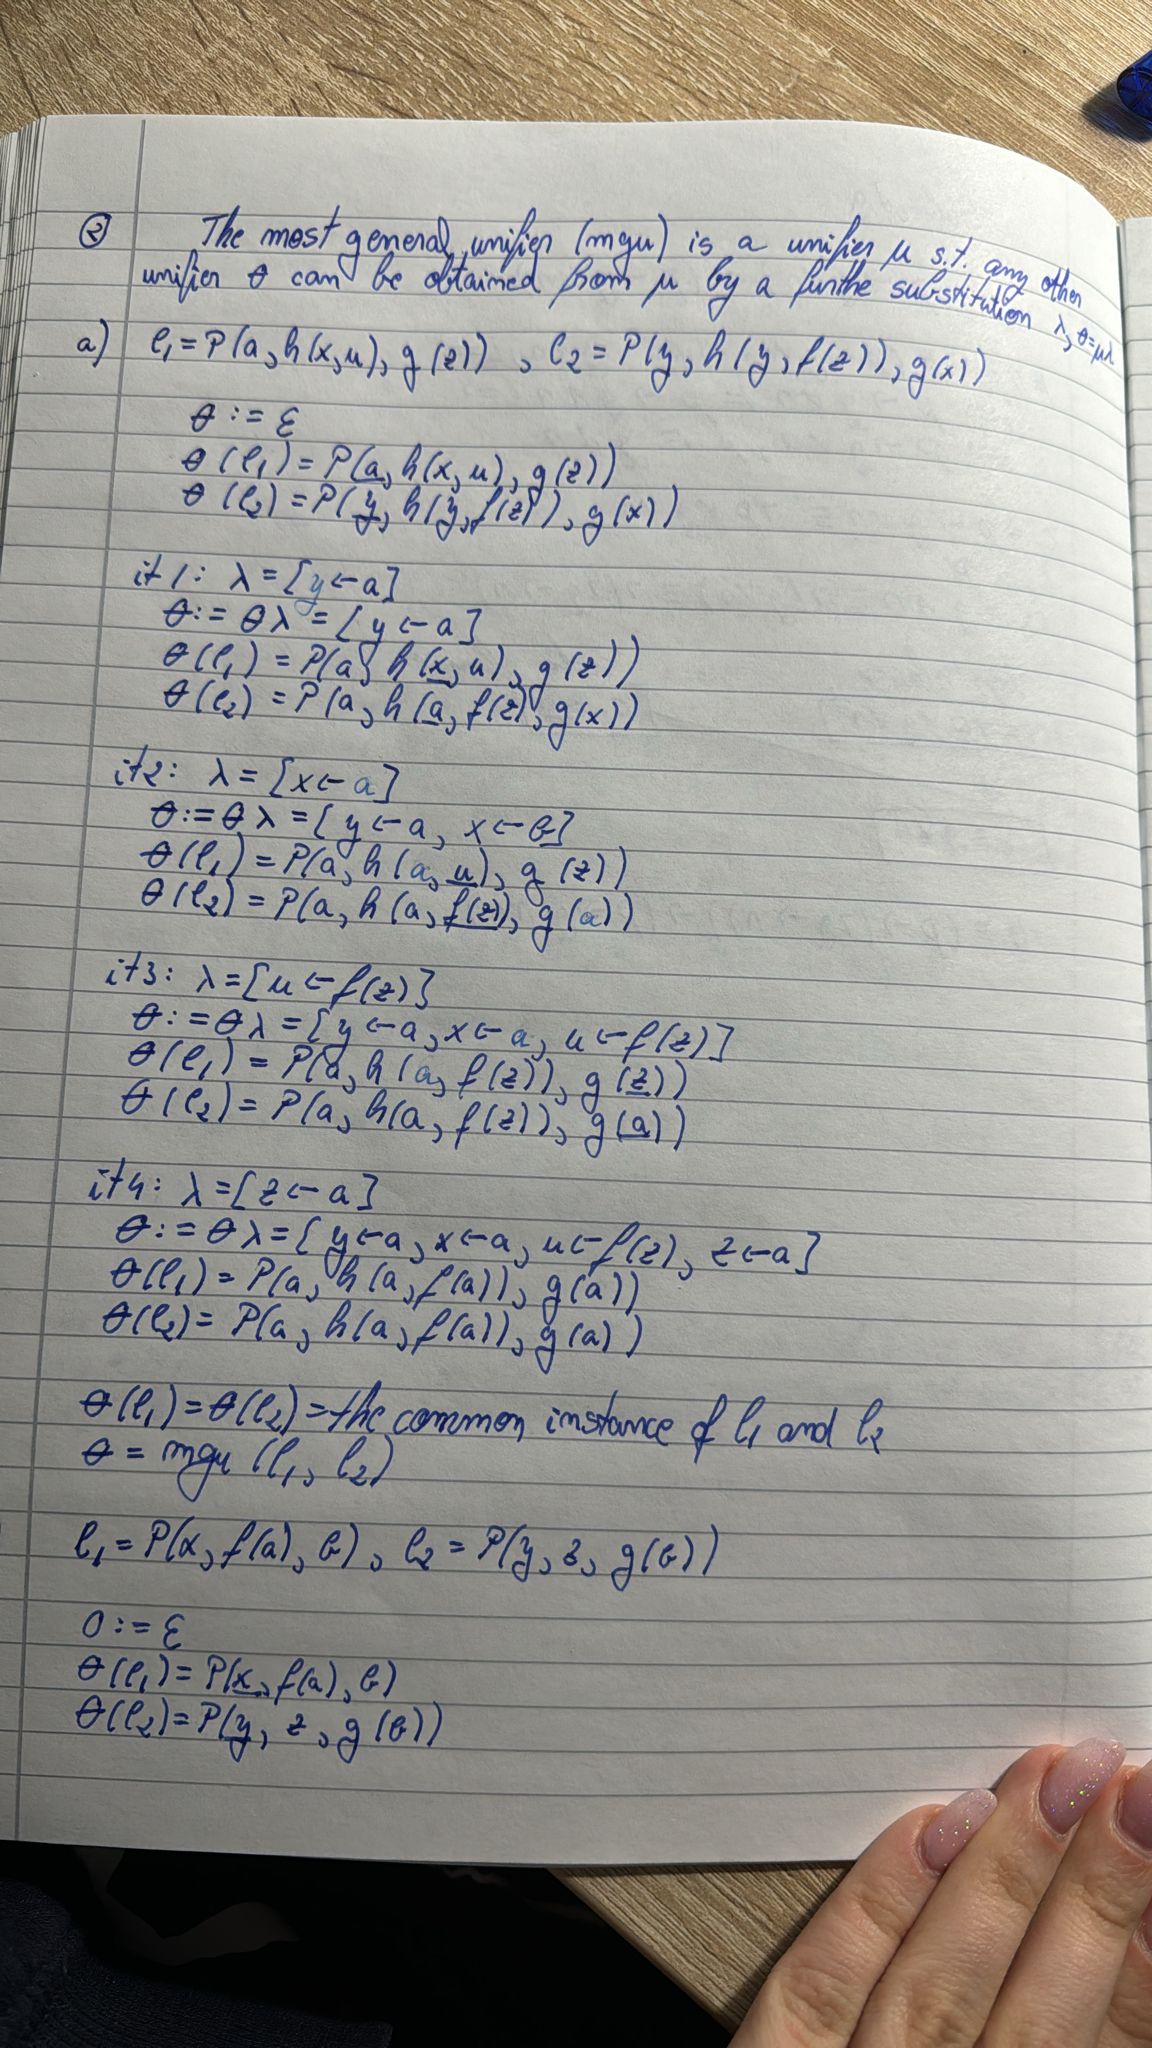 ② The most general unifier (mgu) is a unifier μ s.t. any other
unifier θ can be obtained from μ by a furthe substitution λ, θ=μλ
a) l₁ = P(a, h(x,u), g(z)) , l₂ = P(y, h(y, f(z)), g(x))
θ := ε
θ(l₁) = P(a, h(x, u), g(z))
θ(l₂) = P(y, h(y, f(z)), g(x))
it1: λ = [y ← a]
θ := θλ = [y ← a]
θ(l₁) = P(a, h(x, u), g(z))
θ(l₂) = P(a, h(a, f(z), g(x))
it2: λ = [x ← a]
θ := θλ = [y ← a, x ← b]
θ(l₁) = P(a, h(a, u), g(z))
θ(l₂) = P(a, h(a, f(z)), g(a))
it3: λ = [u ← f(z)]
θ := θλ = [y ← a, x ← a, u ← f(z)]
θ(l₁) = P(a, h(a, f(z)), g(z))
θ(l₂) = P(a, h(a, f(z)), g(a))
it4: λ = [z ← a]
θ := θλ = [y ← a, x ← a, u ← f(z), z ← a]
θ(l₁) = P(a, h(a, f(a)), g(a))
θ(l₂) = P(a, h(a, f(a)), g(a))
θ(l₁) = θ(l₂) = the common instance of l₁ and l₂
θ = mgu (l₁, l₂)
l₁ = P(x, f(a), b), l₂ = P(y, z, g(b))
O := ε
θ(l₁) = P(x, f(a), b)
θ(l₂) = P(y, z, g(b))